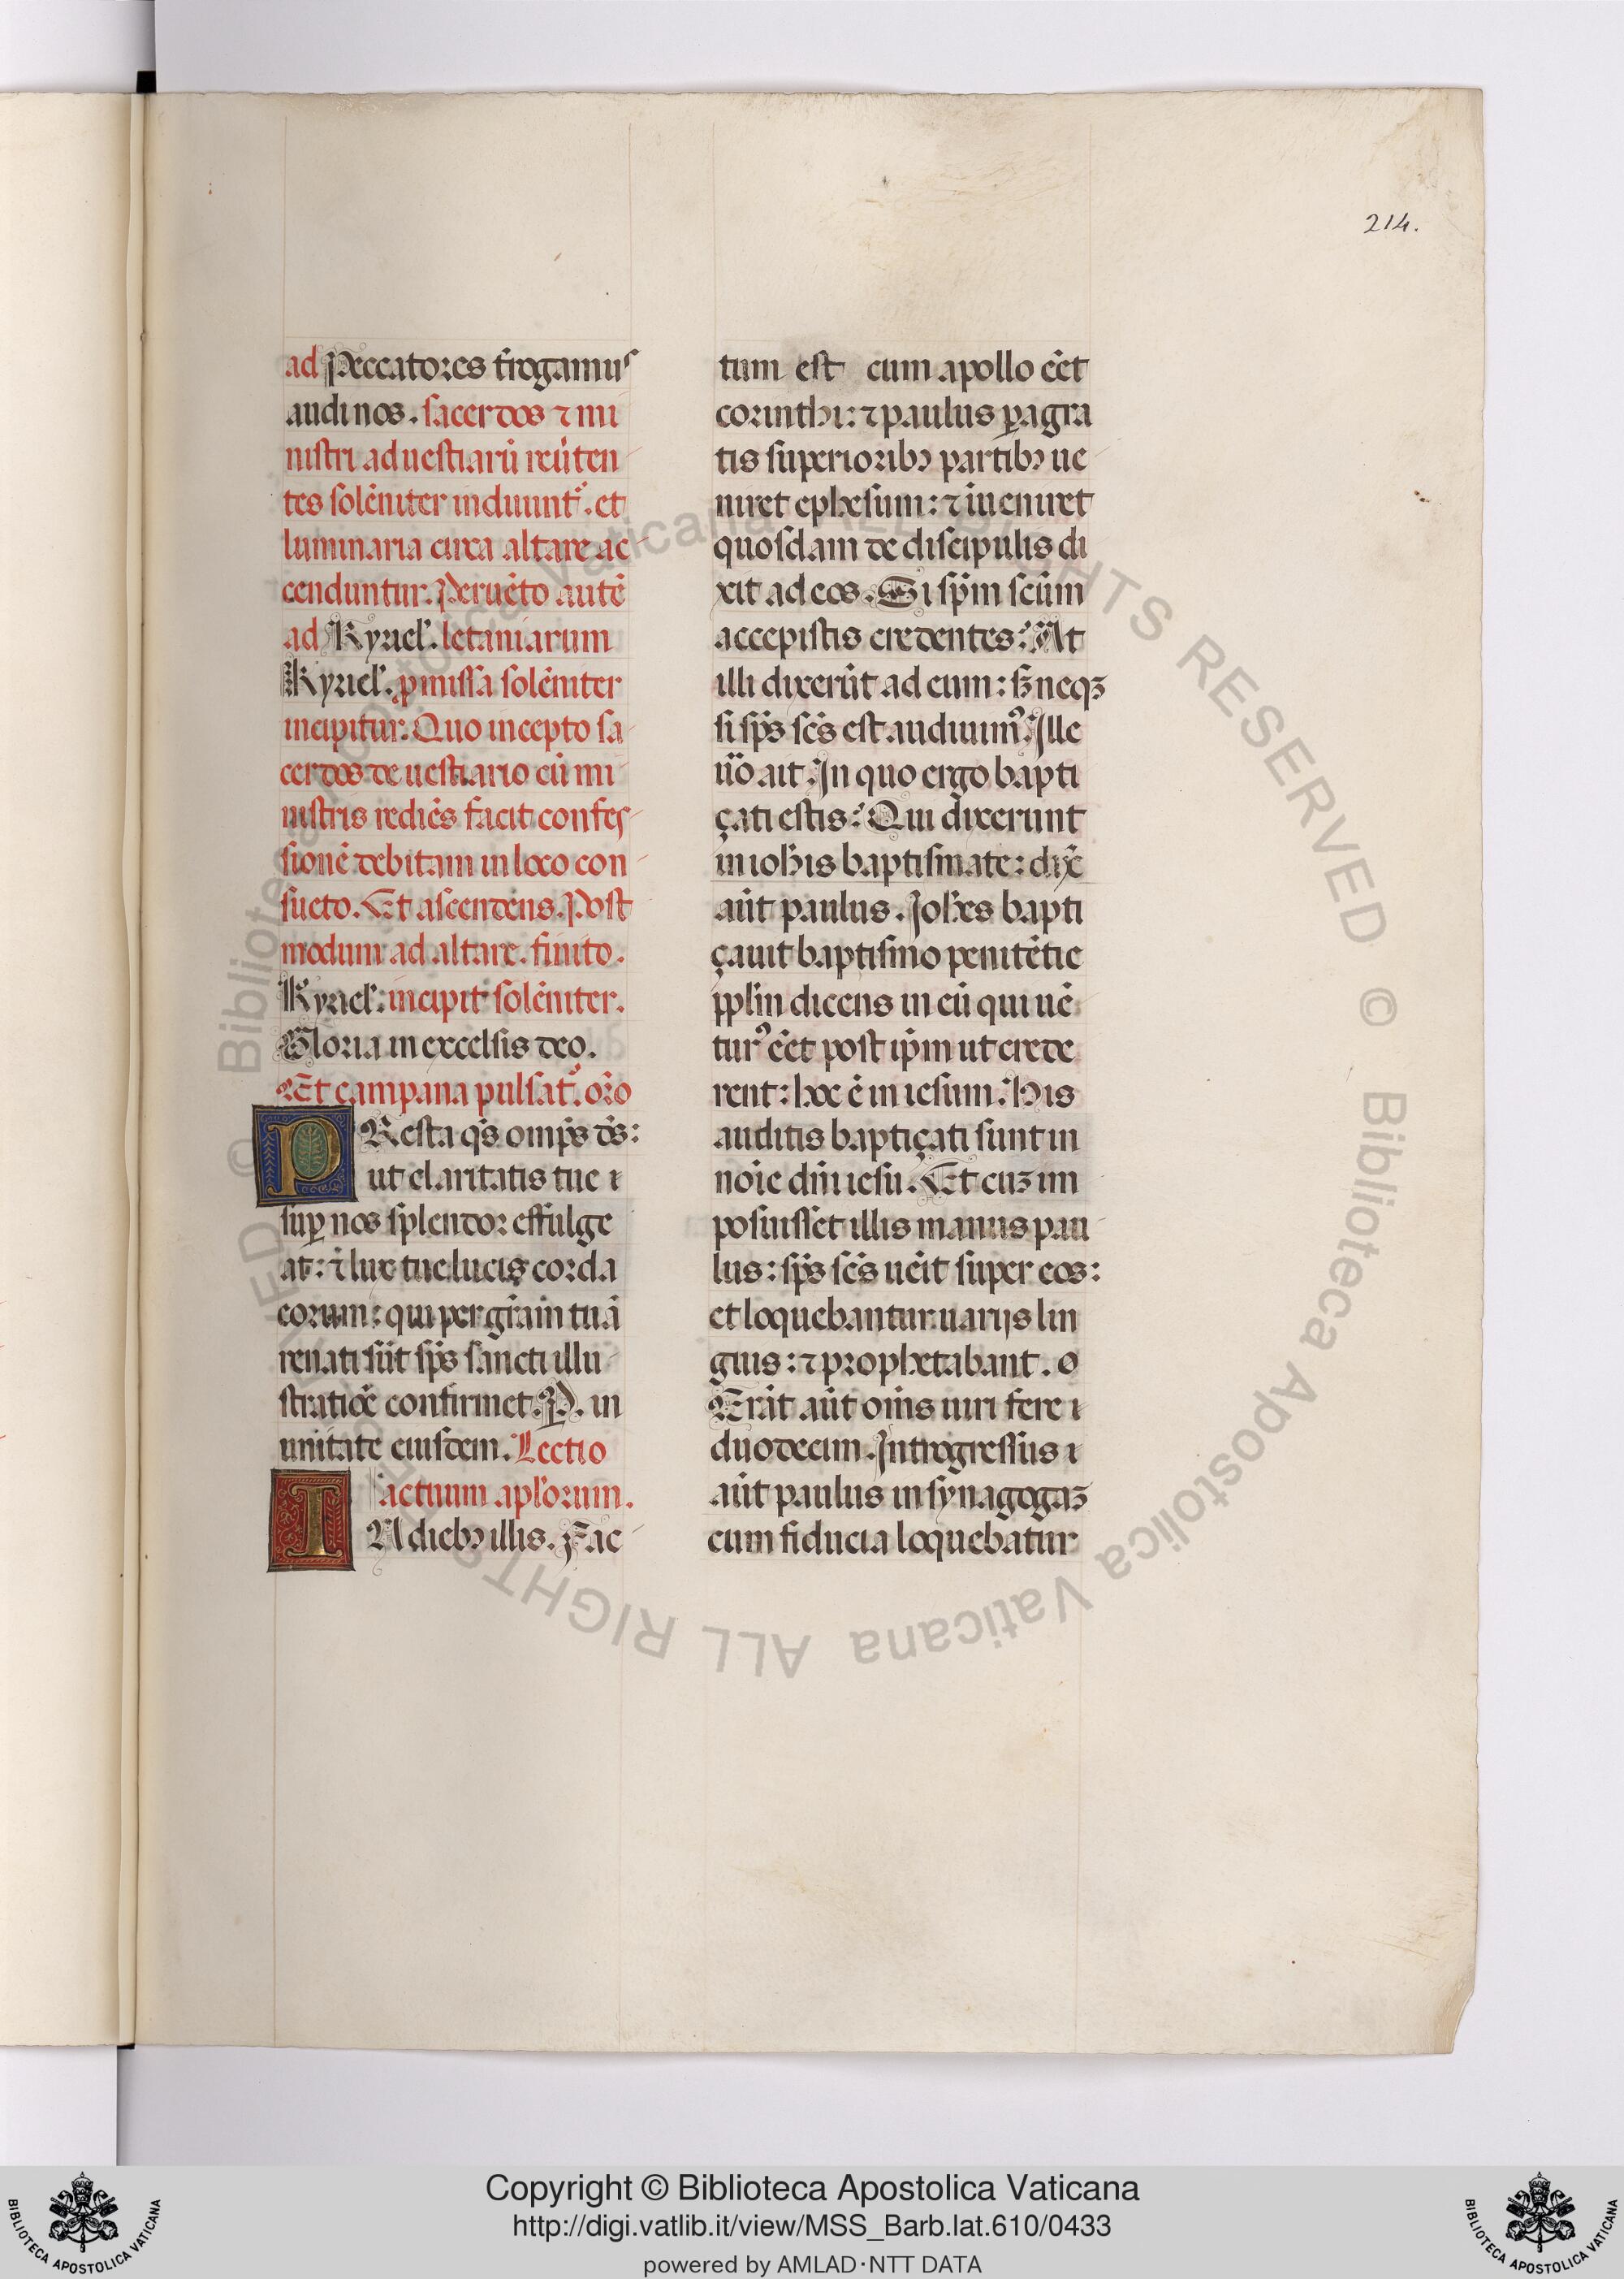 214.
ad Peccatores t̃rogamus
audi nos. sacerdos ⁊ mi
nistri ad uestiarũ reũten
tes solẽniter induunt᷑. et
luminaria circa altare ac
cenduntur. Peruẽto autẽ
ad Kyriel̃. letaniarum
Kyriel̃. p̱missa solẽniter
incipitur. Quo incepto sa
cerdos de uestiario cũ mi
nistris rediẽs facit confes
sionẽ debitam in loco con
sueto. Et ascendens. Post
modum ad altare. finito.
Kyriel̃. incipit solẽniter.
Gloria in excelsis deo.
Et campana pulsat᷑. or̃o
PResta q̃s omp̃s d̃s:
ut claritatis tue ı
sup̱ nos splendor effulge
at: ⁊ lux tue lucis corda
eorum: qui per gr̃am tuã
renati sũt sp̃s sancti illu
stratiõe confirmet. P. in
unitate eiusdem. Lectio
actuum apl̃orum.
IN dieb⁊ illis. Fac
tum est cum apollo eẽt
corinthi: ⁊ paulus p̱agra
tis superiorib⁊ partib⁊ ue
niret ephesum: ⁊ ĩueniret
quosdam de discipulis di
xit ad eos. Si sp̃m scũm
accepistis credentes: At
illi dixerũt ad eum: s̃ neqꝫ
si sp̃s sc̃s est audiuimꝰ. Ille
ũo ait. In quo ergo bapti
çati estis: Qui dixerunt
in ioh̃is baptismate: dix̃
aũt paulus. Ioh̃es bapti
çauit baptismo penitẽtie
ppl̃m dicens in eũ qui uẽ
turꝰ eẽt post ip̃m ut crede
rent: hoc ẽ in iesum. His
auditis baptiçati sunt in
noĩe dñi iesu. Et cuꝫ im
posuisset illis manus pau
lus: sp̃s sc̃s uẽit super eos:
et loquebantur uarijs lin
guis: ⁊ prophetabant. o
Erãt aũt om̃s uiri fere ı
duodecim. Introgressus ı
aũt paulus in synagogaꝫ
cum fiducia loquebatur
© Biblioteca Apostolica Vaticana ALL RIGHTS RESERVED © Biblioteca Apostolica Vaticana ALL RIGHTS RESERVED
Copyright © Biblioteca Apostolica Vaticana
http://digi.vatlib.it/view/MSS_Barb.lat.610/0433
powered by AMLAD·NTT DATA
BIBLIOTECA APOSTOLICA VATICANA
BIBLIOTECA APOSTOLICA VATICANA